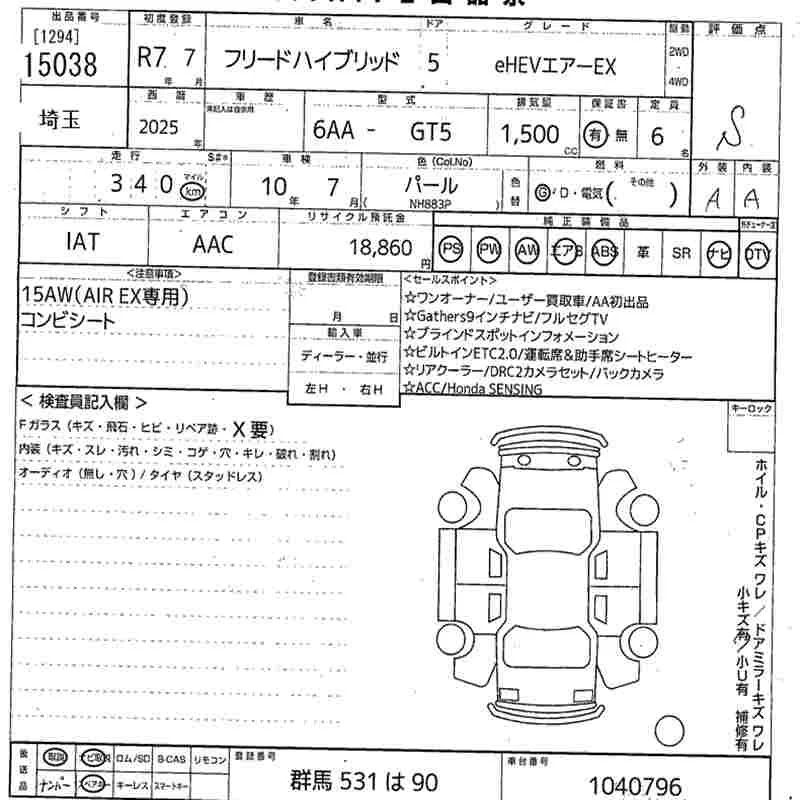 出品番号 初度登録 車名 ドア グレード 駆動 評価点
[1294]
15038 R7 7 フリードハイブリッド 5 eHEVエアーEX 2WD・4WD
年 月
埼玉 西暦 車歴 型式 排気量 保証書 定員 S
2025 年 未記入は自家用 6AA - GT5 1,500 CC 有 無 6 名
走行 S#* 車検 色(Col.No) 燃料 外装 内装
340 マイル km 10 年 7 月 パール 色替 G・D・電気( その他 ) A A
NH883P
シフト エアコン リサイクル預託金 純正装備品
IAT AAC 18,860 円 PS PW AW エアB ABS 革 SR ナビ DTV
<注意事項> 登録書類有効期限 <セールスポイント>
15AW(AIR EX専用)
コンビシート
月 日
輸入車
ディーラー・並行
左H ・ 右H
☆ワンオーナー/ユーザー買取車/AA初出品
☆Gathers9インチナビ/フルセグTV
☆ブラインドスポットインフォメーション
☆ビルトインETC2.0/運転席&助手席シートヒーター
☆リアクーラー/DRC2カメラセット/バックカメラ
☆ACC/Honda SENSING
<検査員記入欄> キーロック
Fガラス(キズ・飛石・ヒビ・リペア跡・X要)
内装(キズ・スレ・汚れ・シミ・コゲ・穴・キレ・破れ・割れ)
オーディオ(無し・穴)/タイヤ(スタッドレス)
ホイル・CPキズ ワレ / ドアミラーキズ ワレ
小キズ有/小U有 補修有
後送品 取説 ナビ取説 ロム/SD B-CAS リモコン
ナンバー スペアキー キーレス スマートキー
登録番号 群馬 531 は 90
車台番号 1040796